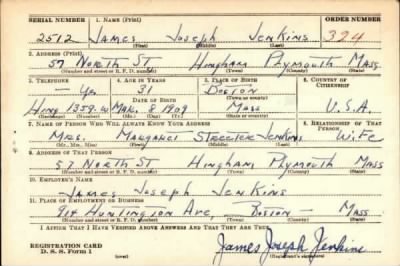 SERIAL NUMBER 1. NAME (Print) ORDER NUMBER
2512 JAMES JOSEPH JENKINS 324
(First) (Middle) (Last)
2. ADDRESS (Print)
57 NORTH ST HINGHAM PLYMOUTH MASS
(Number and street or R. F. D. number) (Town) (County) (State)
3. TELEPHONE 4. AGE IN YEARS 5. PLACE OF BIRTH 6. COUNTRY OF CITIZENSHIP
Yes 31 BOSTON
DATE OF BIRTH (Town or county)
HING 1359-W MAR. 8 1909 MASS U.S.A.
(Mo.) (Day) (Yr.) (State or country)
7. NAME OF PERSON WHO WILL ALWAYS KNOW YOUR ADDRESS 8. RELATIONSHIP OF THAT PERSON
MRS. MARGARET STREETER JENKINS WIFE
(Mr., Mrs., Miss) (First) (Middle) (Last)
9. ADDRESS OF THAT PERSON
57 NORTH ST HINGHAM PLYMOUTH MASS
(Number and street or R. F. D. number) (Town) (County) (State)
10. EMPLOYER'S NAME
JAMES JOSEPH JENKINS
11. PLACE OF EMPLOYMENT OR BUSINESS
HUNTINGTON AVE, BOSTON - MASS
(Number and street or R. F. D. number) (Town) (County) (State)
I AFFIRM THAT I HAVE VERIFIED ABOVE ANSWERS AND THAT THEY ARE TRUE.
REGISTRATION CARD
D. S. S. Form 1
James Joseph Jenkins
(Registrant's signature)